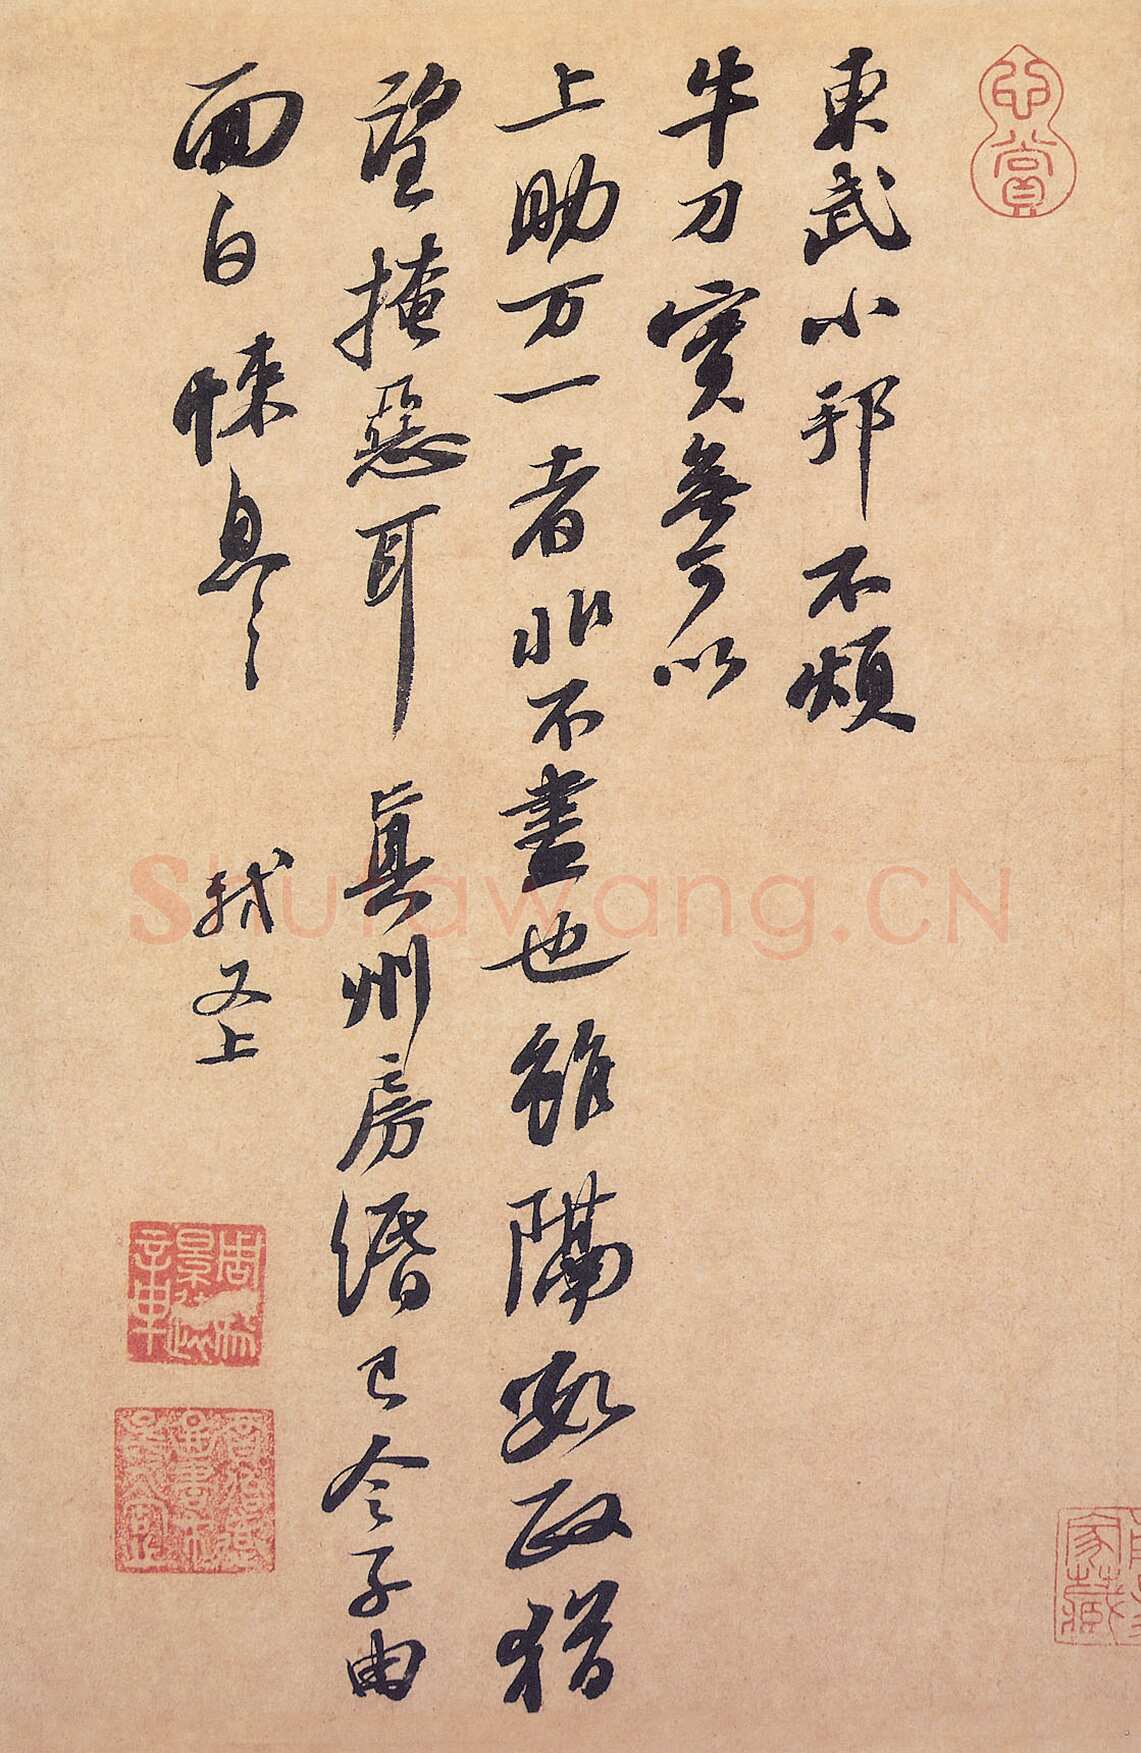 東武小邦不煩
牛刀實無可以
上助万一者非不盡也雖隔數政猶
望掩惡耳 真州房緡已令子由
面白悚息〻
軾又上
Shufawang.CN
家藏